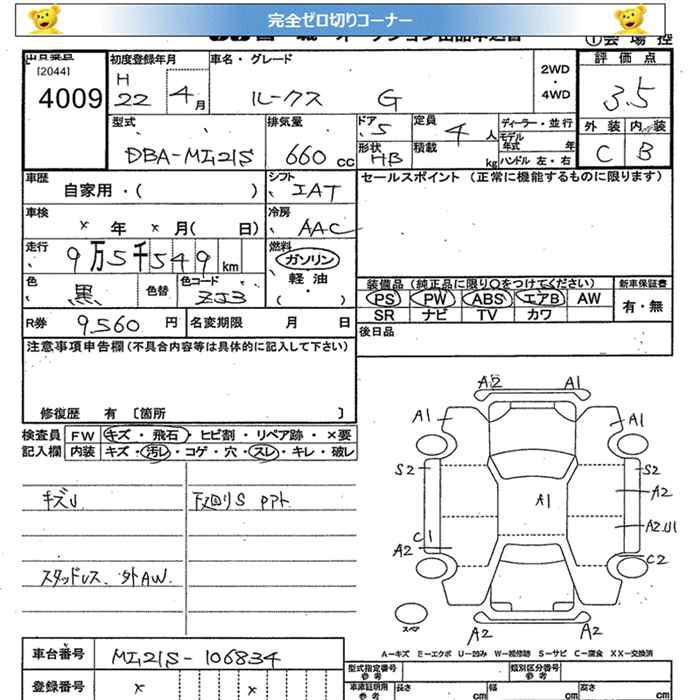 完全ゼロ切りコーナー
ョン出品申込書
①会場控
[2044]
4009
初度登録年月
H
22 4月
車名・グレード
ルークス G
2WD
・
4WD
評価点
3.5
外装 内装
C B
型式
DBA-ML21S
排気量
660cc
ドア
5
形状
HB
定員
4人
積載
kg
ディーラー・並行
モデル
年式 年
ハンドル 左・右
車歴
自家用・( )
シフト
IAT
セールスポイント (正常に機能するものに限ります)
車検
× 年 × 月( 日)
冷房
AAC
走行
9万5千549km
燃料
ガソリン
・
軽油
( )
色
黒
色替
色コード
ZJ3
装備品 (純正品に限り○をつけてください)
PS PW ABS エアB AW
SR ナビ TV カワ
新車保証書
有・無
R券 9560円
名変期限 月 日
後日品
注意事項申告欄(不具合内容等は具体的に記入して下さい)
修復歴 有 〔箇所 〕
検査員
記入欄
FW キズ・飛石・ヒビ割・リペア跡・×要
内装 キズ・汚レ・コゲ・穴・スレ・キレ・破レ
キズU
下廻りS
スタッドレス、外AW.
A2 A1
A1 A1
S2 S2
A2
A1
A2.U1
C1
A2
C2
スペア
A2 A2
A=キズ E=エクボ U=凹み W=補修跡 S=サビ C=腐食 XX=交換済
車台番号
ML21S-106834
登録番号
× ×
型式指定番号
類別区分番号
車庫証明用
参考
長さ cm
幅 cm
高さ cm